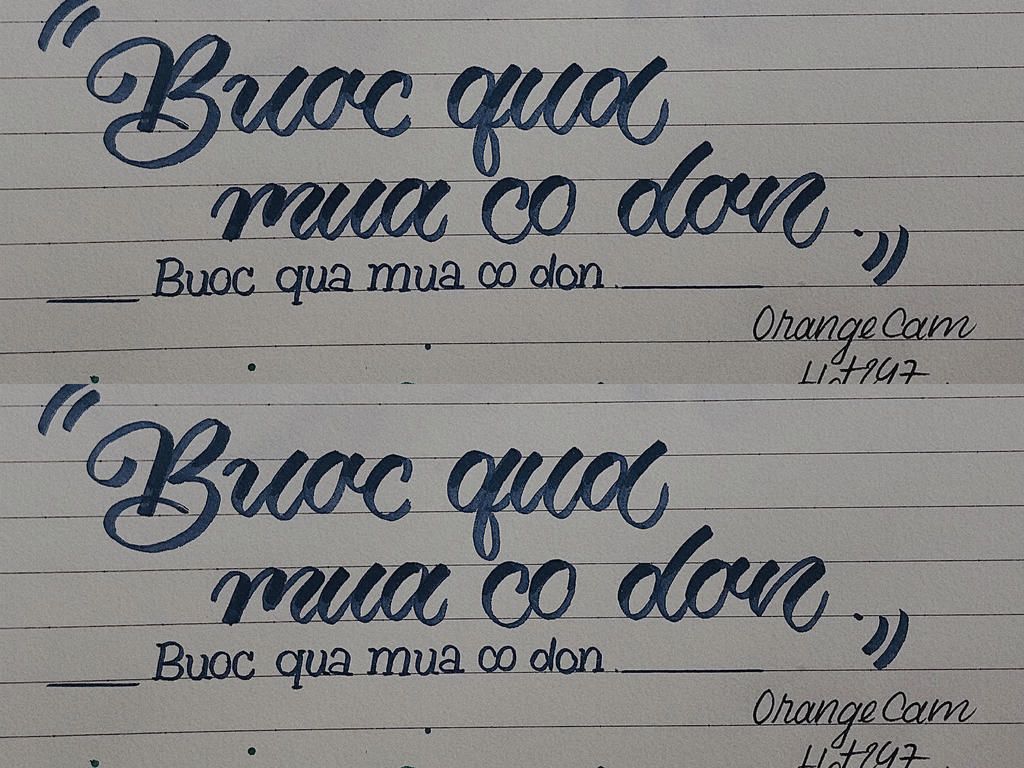 “Buoc qua
mua co don.”
Buoc qua mua co don
OrangeCam
“Buoc qua
mua co don.”
Buoc qua mua co don
OrangeCam